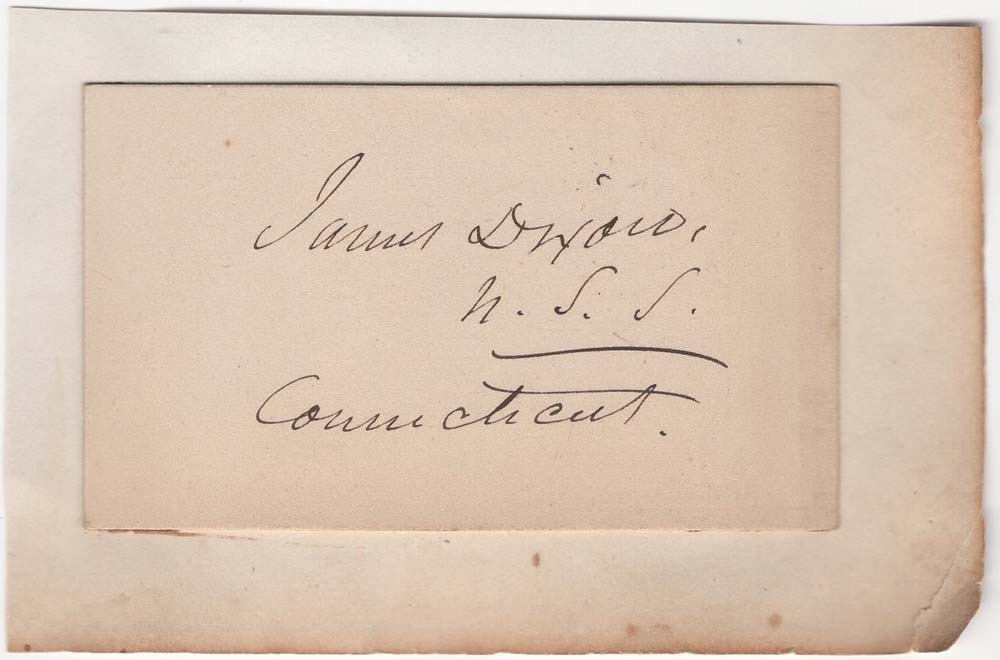 James Dixon,
U. S. S.
Connecticut.